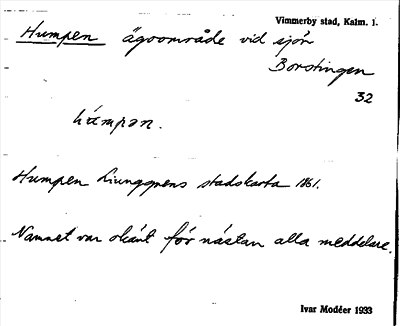 Vimmerby stad, Kalm. l.
Humpen ägoområde vid sjön
Borstingen
32
Humpen Ljunggrens stadskarta 1861.
Namnet var okänt för nästan alla meddelare.
Ivar Modéer 1933